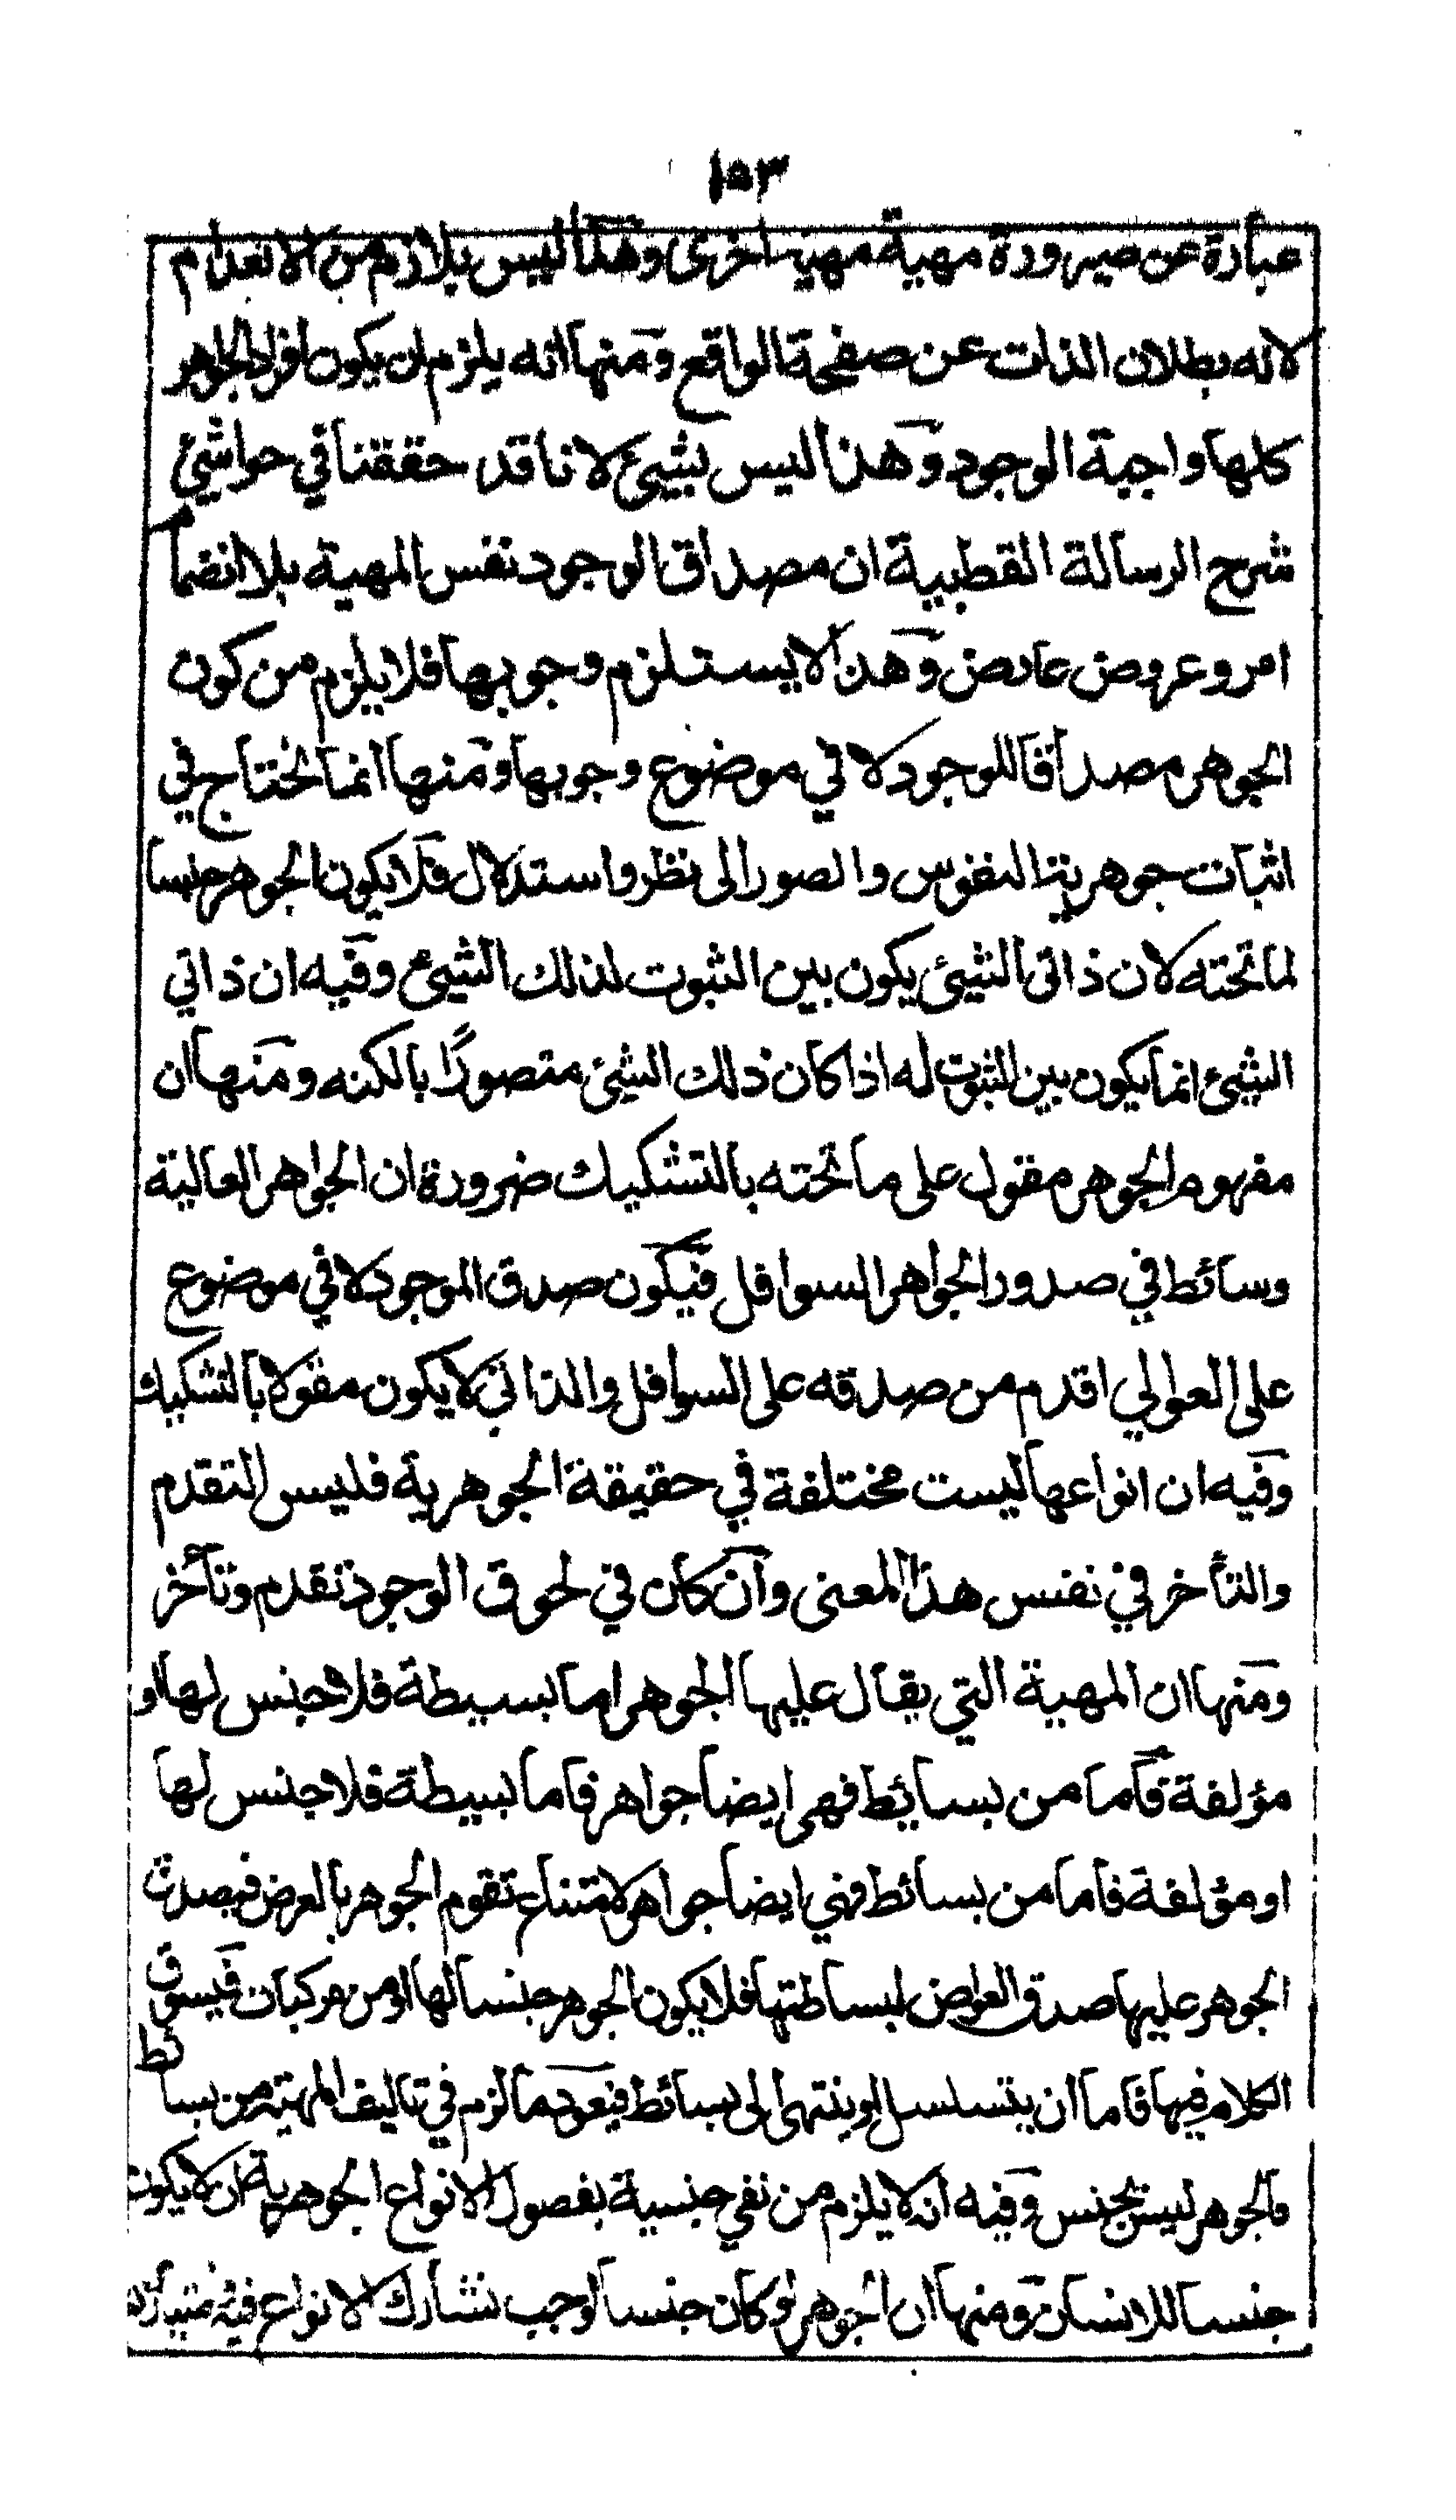 ١٥٣
عبارة عن صيرورة مهية مهية اخرى وهذا ليس بلازم من الانعدام
لانه بطلان الذات عن صفحة الواقع ومنها انه يلزم ان يكون افراد الجواهر
كلها واجبة الوجود وهذا ليس بشيئ لانا قد حققنا في حواشي
شرح الرسالة القطبية ان مصداق الوجود نفس المهية بلا انضمام
امر وعروض عارض وهذا لا يستلزم وجوبها فلا يلزم من كون
الجوهر مصداقا للوجود لا في موضوع وجوبها ومنها انما نحتاج في
اثبات جوهرية النفوس والصور الى نظر واستدلال فلا يكون الجوهر جنسا
لما تحته لان ذاتى الشيئ يكون بين الثبوت لذلك الشيئ وفيه ان ذاتي
الشيئ انما يكون بين الثبوت له اذا كان ذلك الشيئ متصورًا بالكنه ومنها ان
مفهوم الجوهر مقول على ما تحته بالتشكيك ضرورة ان الجواهر العالية
وسائط في صدور الجواهر السوافل فيكون صدق الموجود لا في موضوع
على العوالي اقدم من صدقه على السوافل والذاتي لا يكون مقولا بالتشكيك
وفيه ان انواعها ليست مختلفة في حقيقة الجوهرية فليس التقدم
والتأخر في نفس هذا المعنى وان كان في لحوق الوجود تقدم وتأخر
ومنها ان المهية التي يقال عليها الجوهر اما بسيطة فلا جنس لها او
مؤلفة فاما من بسائط فهى ايضا جواهر فاما بسيطة فلا جنس لها
او مؤلفة فاما من بسائط فهي ايضا جواهر لامتناع تقوم الجوهر بالعرض فيصدق
الجوهر عليها صدق العوارض لبساطتها فلا يكون الجوهر جنسا لها او من مركبات فيسوق
الكلام فيها فاما ان يتسلسل او ينتهى الى بسائط فيعود ما لزم في تاليف المهية من بسائط
فالجوهر ليس بجنس وفيه انه لا يلزم من نفي جنسية بفصول الانواع الجوهرية ان لا يكون
جنسا للانسان ومنها ان الجوهر لو كان جنسا لوجب تشارك الانواع فيه